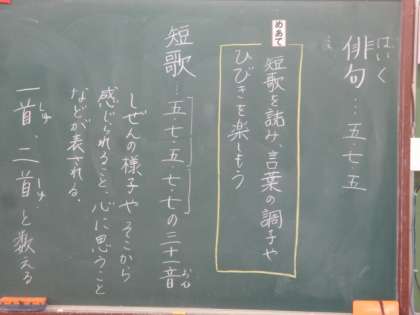 俳句…五・七・五
はいく
めあて
短歌を詰み、言葉の調子や
ひびきを楽しもう
短歌…五・七・五・七・七の三十一音
おん
しぜんの様子やそこから
感じられること、心に思うこと
などが表される。
一首、二首と数える
しゅ
しゅ